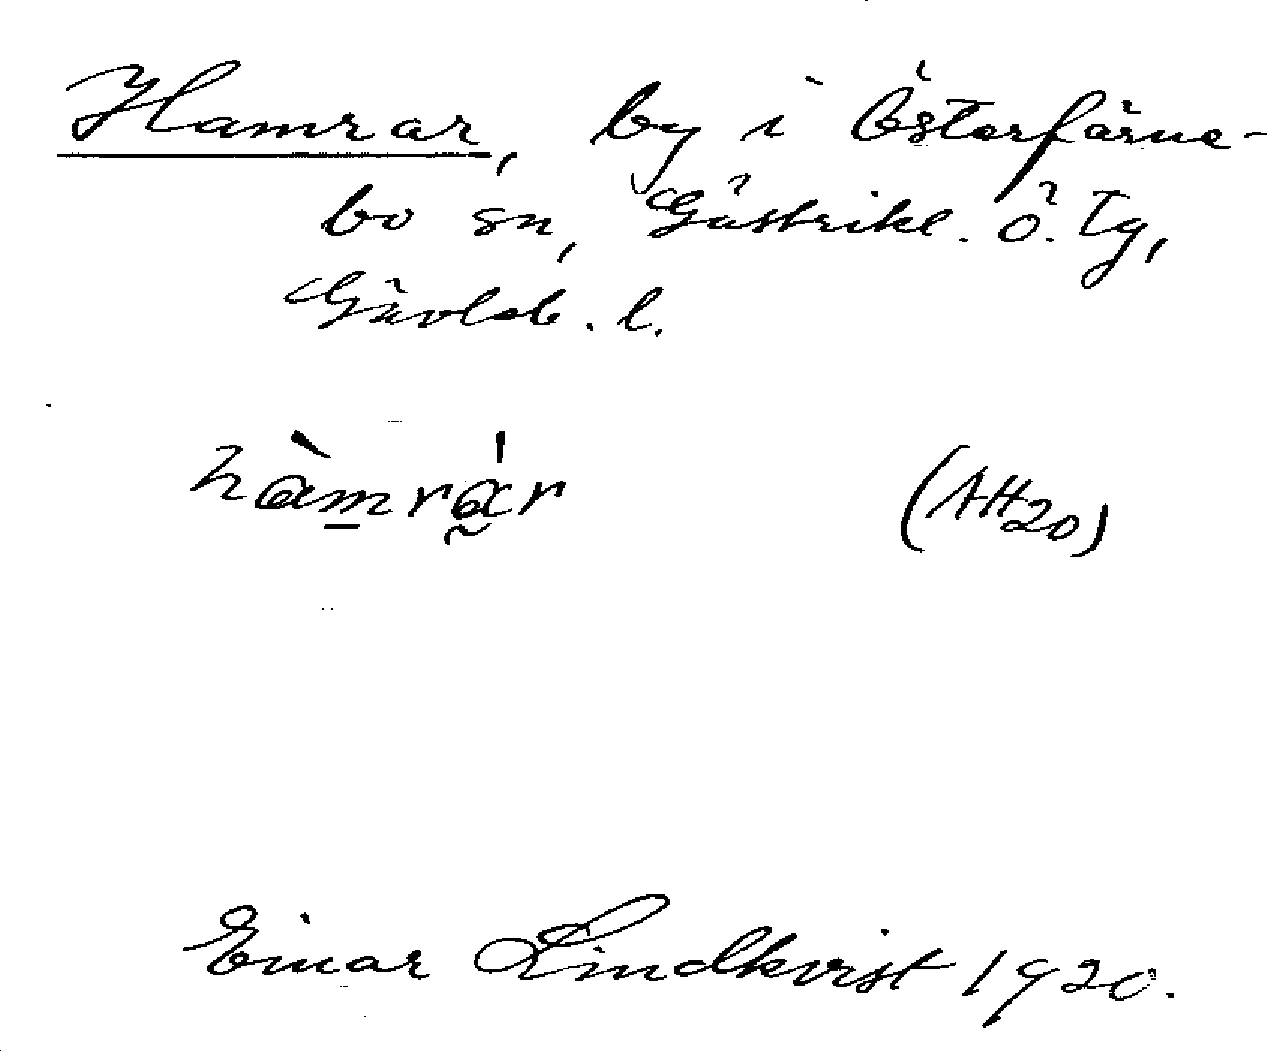 Hamrar, by i Österfärne-
bo sn, Gästrikl. ö. tg,
Gävleb. l.
hàm̱rά̰r (AH20)
Einar Lindkvist 1920.